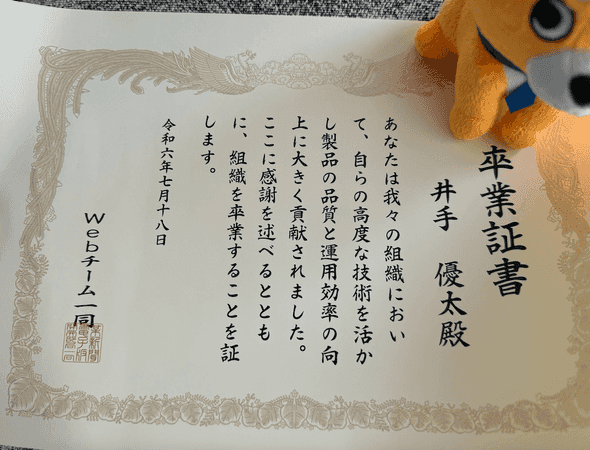 卒業証書
井手 優太殿
あなたは我々の組織におい
て、自らの高度な技術を活か
し製品の品質と運用効率の向
上に大きく貢献されました。
ここに感謝を述べるととも
に、組織を卒業することを証
します。
令和六年七月十八日
Webチーム一同